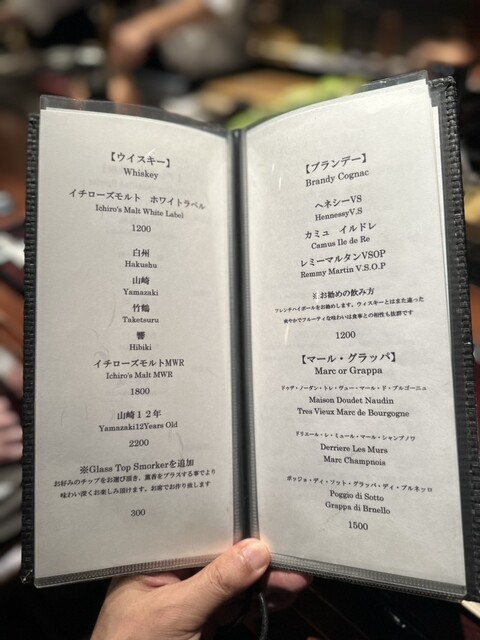 【ウイスキー】
Whiskey
イチローズモルト　ホワイトラベル
Ichiro's Malt White Label
1200
白州
Hakushu
山崎
Yamazaki
竹鶴
Taketsuru
響
Hibiki
イチローズモルトMWR
Ichiro's Malt MWR
1800
山崎１２年
Yamazaki12Years Old
2200
※Glass Top Smorkerを追加
お好みのチップをお選び頂き、薫香をプラスする事でより
味わい深くお楽しみ頂けます。お席でお作り致します
300
【ブランデー】
Brandy Cognac
ヘネシーVS
HennessyV.S
カミュ　イルドレ
Camus Ile de Re
レミーマルタンVSOP
Remmy Martin V.S.O.P
※お勧めの飲み方
フレンチハイボールをお勧めします。ウィスキーとはまた違った
爽やかでフルーティな味わいは食事との相性も抜群です
1200
【マール・グラッパ】
Marc or Grappa
ドゥデ・ノーダン・トレ・ヴュー・マール・ド・ブルゴーニュ
Maison Doudet Naudin
Tres Vieux Marc de Bourgogne
ドリエール・レ・ミュール・マール・シャンプノワ
Derriere Les Murs
Marc Champnois
ポッジョ・ディ・ソット・グラッパ・ディ・ブルネッロ
Poggio di Sotto
Grappa di Brnello
1500